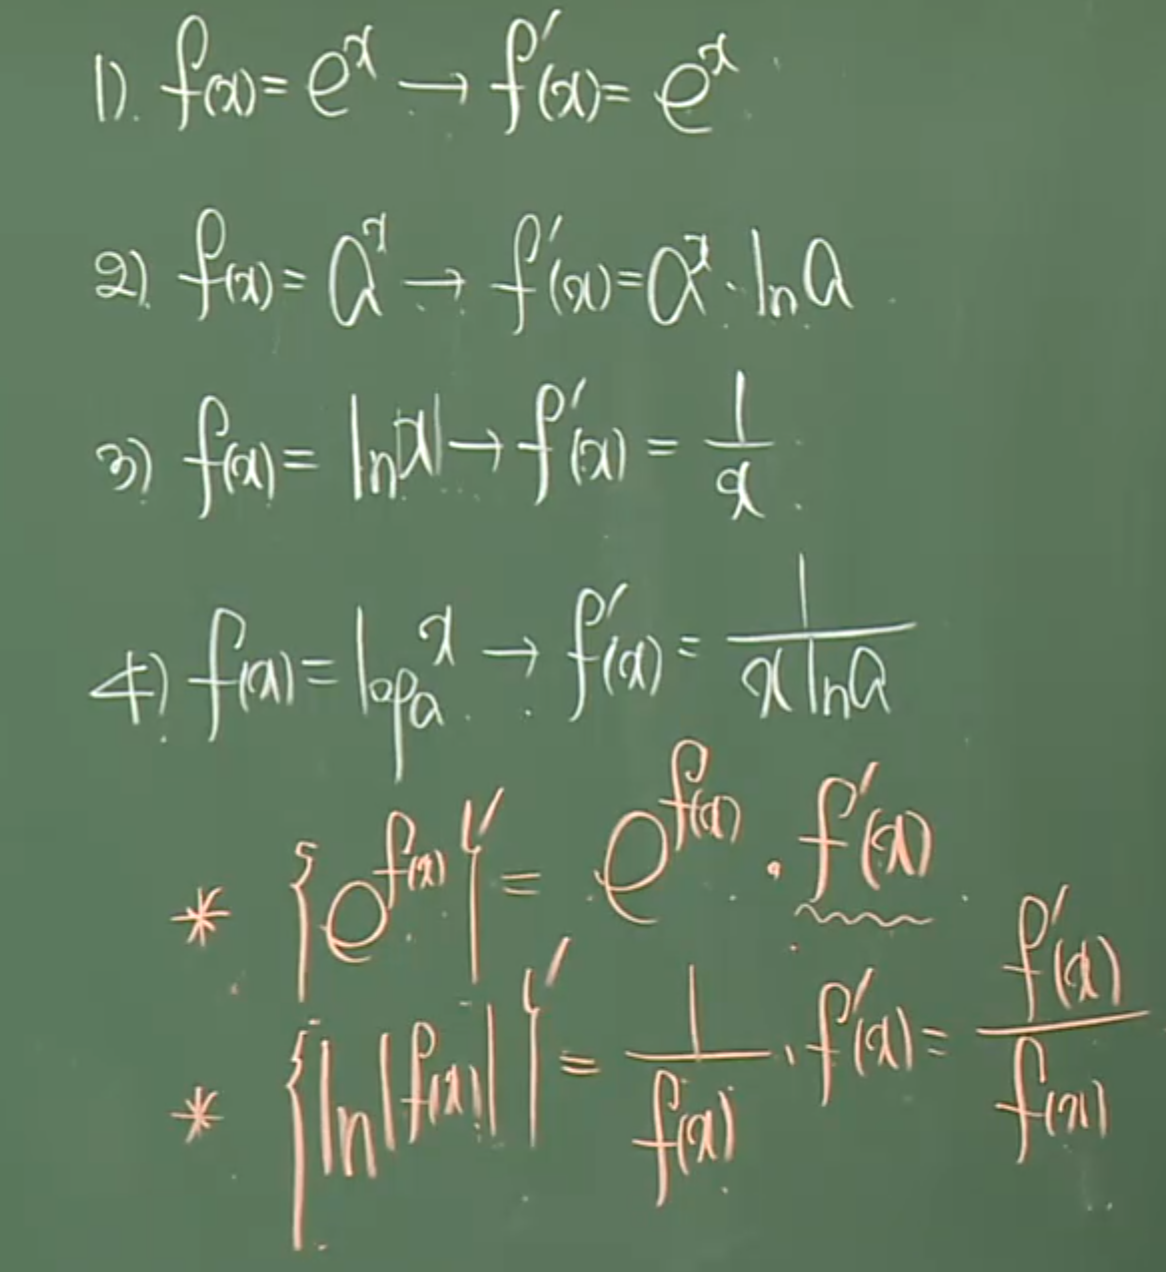 1). f(x) = e^x → f'(x) = e^x
2) f(x) = a^x → f'(x) = a^x · ln a
3) f(x) = ln|x| → f'(x) = 1/x
4) f(x) = log_a x → f'(x) = 1/(x ln a)
* {e^f(x)}' = e^f(x) · f'(x)
* {ln|f(x)|}' = 1/f(x) · f'(x) = f'(x)/f(x)